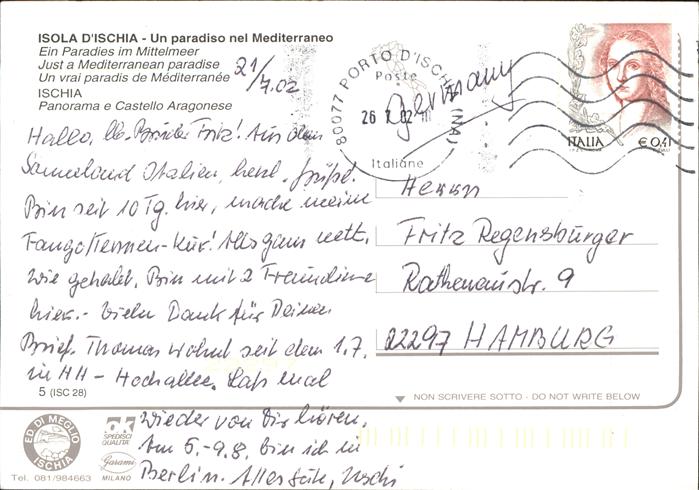 ISOLA D'ISCHIA - Un paradiso nel Mediterraneo
Ein Paradies im Mittelmeer
Just a Mediterranean paradise
Un vrai paradis de Méditerranée
ISCHIA
Panorama e Castello Aragonese
21/7.02
80077 PORTO D'ISCHIA (NA)
Poste
26 7 02
Italiane
Germany
ITALIA
€ 0,41
Hallo, lb. Brüder Fritz! Aus dem
Sonneland Italien, herzl. Grüße.
Bin seit 10 Tg. hier, mache meine
Fango/Termen-Kur! Alles ganz nett,
wie gehabt. Bin mit 2 Freundinnen
hier. - Vielen Dank für Deinen
Brief. Thomas wohnt seit dem 1.7.
in HH - Hochallee. Laß mal
wieder von Dir hören.
Am 5.-9.8. bin ich in
Berlin. Alles Gute, Uschi
Herrn
Fritz Regensburger
Rathenaustr. 9
22297 HAMBURG
5 (ISC 28)
NON SCRIVERE SOTTO - DO NOT WRITE BELOW
ED. DI MEGLIO
ISCHIA
Tel. 081/984663
ok
SPEDISCI
QUALITA'
Garami
MILANO